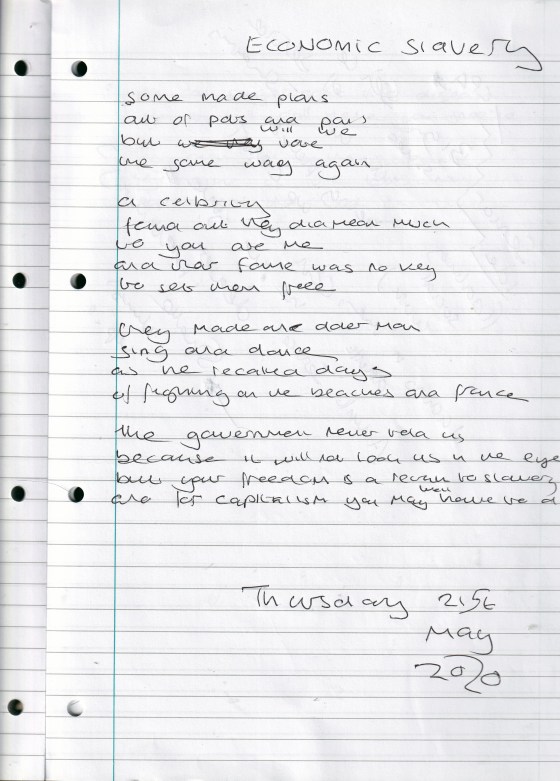 ECONOMIC slavery
some made plans
out of pots and pans
but will we vote
the same way again
a celbrity
found out they did mean much
to you are me
and that fame was no key
to sets them free
they made one older man
sing and dance
as he recalled days
of fighting on the beaches and france
the government never told us
because it will not look us in the eye
but your freedom is a return to slavery
and for capitalism you may well have to d
Thursday 21st
May
2020